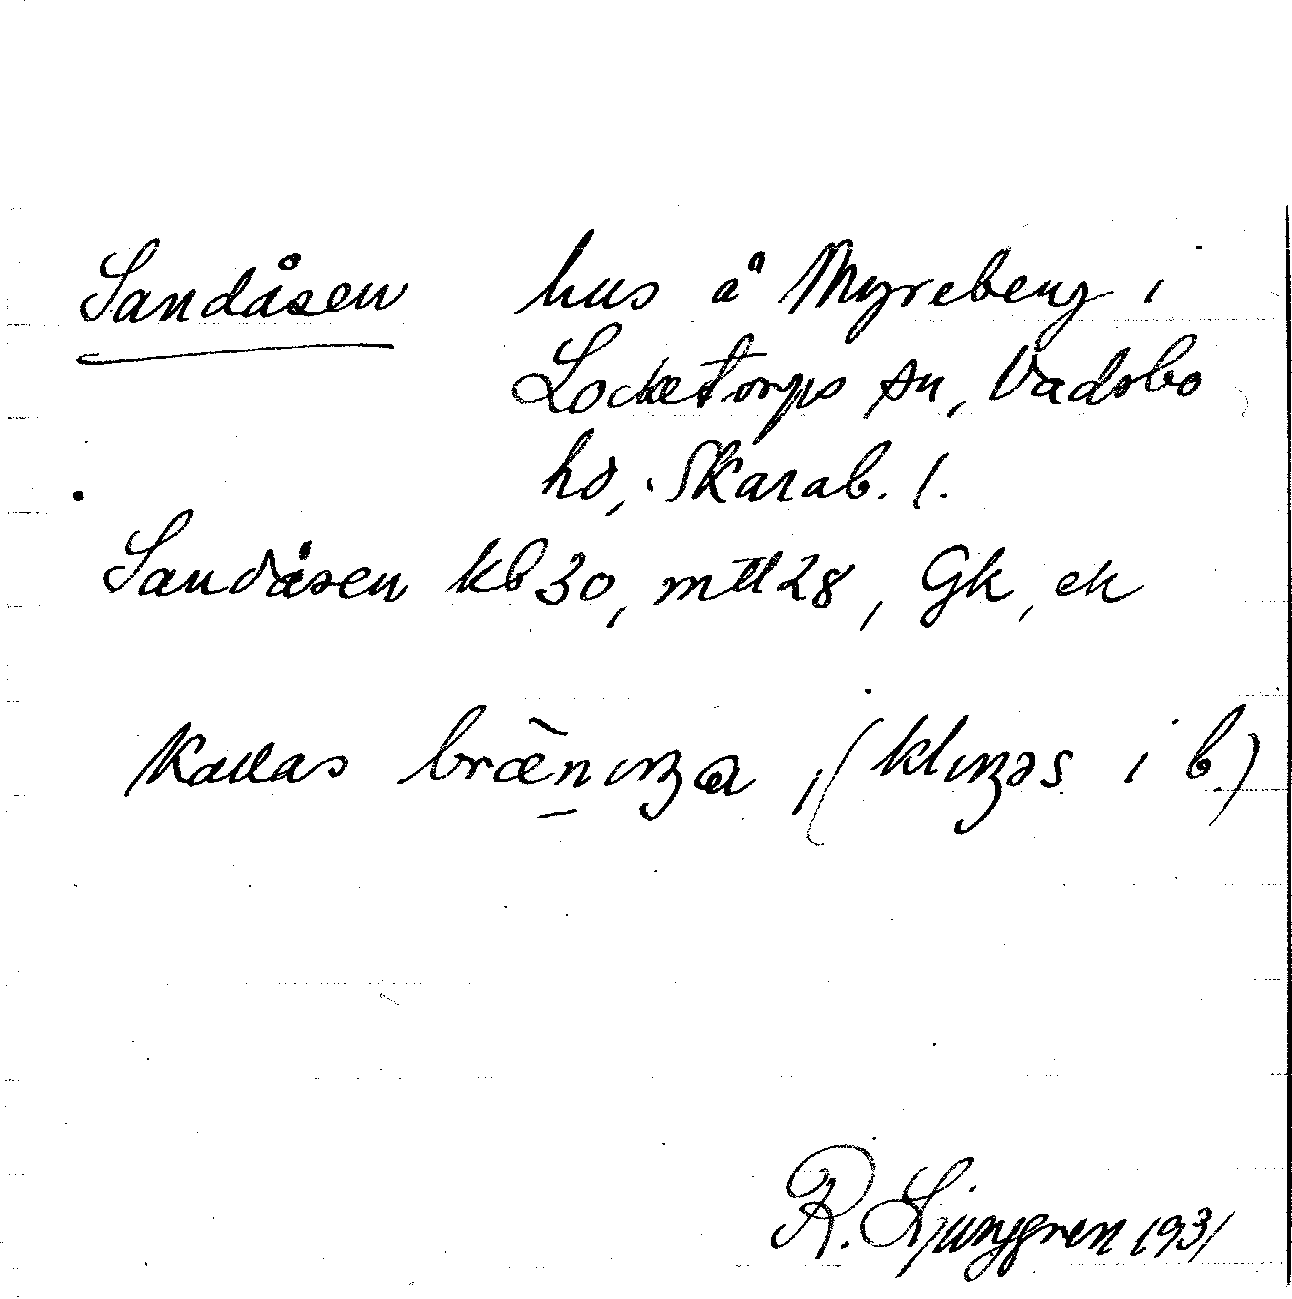 Sandåsen hus å Myreberg i
Locketorps sn, Vadsbo
hd, Skarab. l.
Sandåsen kb 30, mtl 28, Gk, ek
Kallas bræ̀n̲ıŋa, (klıŋəs i b.)
R. Ljunggren 1931